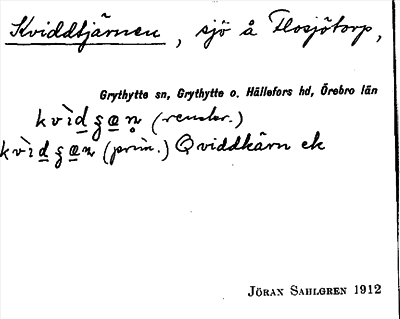 Kviddtjärnen, sjö å Flosjötorp,
Grythytte sn, Grythytte o. Hällefors hd, Örebro län
kvìdʂɐn̥ (renskr.)
kvìdʂɐn (prim.) Qviddkärn ek
JÖRAN SAHLGREN 1912